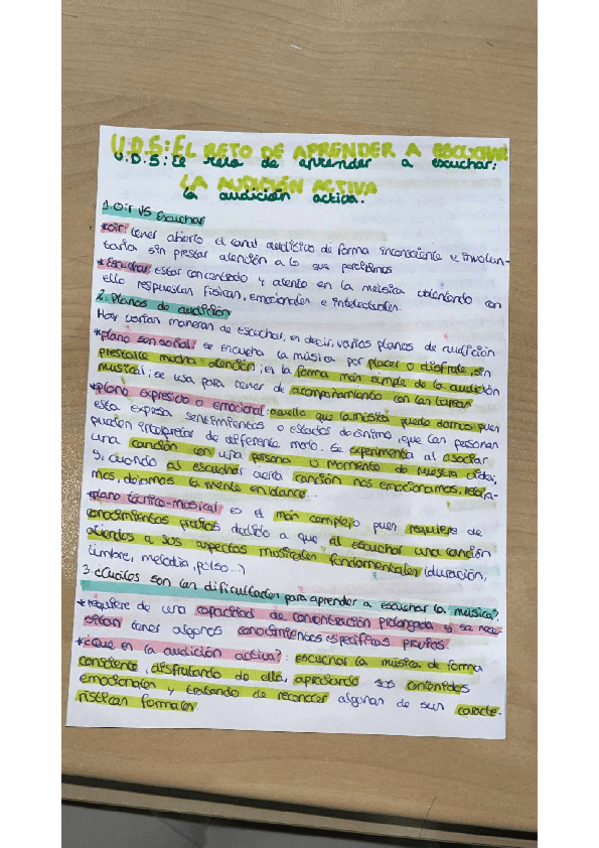 U.D.5: EL RETO DE APRENDER A ESCUCHAR
U.D.5: El reto de aprender a escuchar:
LA AUDICIÓN ACTIVA
la audición activa.
1. Oir VS Escuchar
*oir: tener abierto el canal auditivo de forma inconsciente e involun-
taria sin prestar atención a lo que percibimos
*Escuchar: estar concentrado y atento en la música obteniendo con
ello respuestas físicas, emocionales e intelectuales.
2. Planos de audición
Hay varias maneras de escuchar, es decir, varios planos de audición
*plano sensorial: se escucha la música por placer o disfrute, sin
prestarle mucha atención; es la forma más simple de la audición
musical; se usa para tener de acompañamiento con las tareas
*plano expresivo o emocional: aquello que la música puede darnos pues
esta expresa sentimientos o estados de ánimo, que las personas
pueden interpretar de diferente modo. Se experimenta al asociar
una canción con una persona o momento de nuestra vida,
y, cuando al escuchar cierta canción nos emocionamos, relaja-
mos, dejamos la mente en blanco...
*plano técnico-musical: es el más complejo pues requiere de
conocimientos previos debido a que al escuchar una canción
atiendes a sus aspectos musicales fundamentales (duración,
timbre, melodía, pulso...)
3. ¿Cuáles son las dificultades para aprender a escuchar la música?
*requiere de una capacidad de concentración prolongada y se nece-
sitan tener algunos conocimientos específicos previos.
*¿Que es la audición activa?: escuchar la música de forma
consciente, disfrutando de ella, apreciando sus contenidos
emocionales y tratando de reconocer algunas de sus caracte-
rísticas formales.